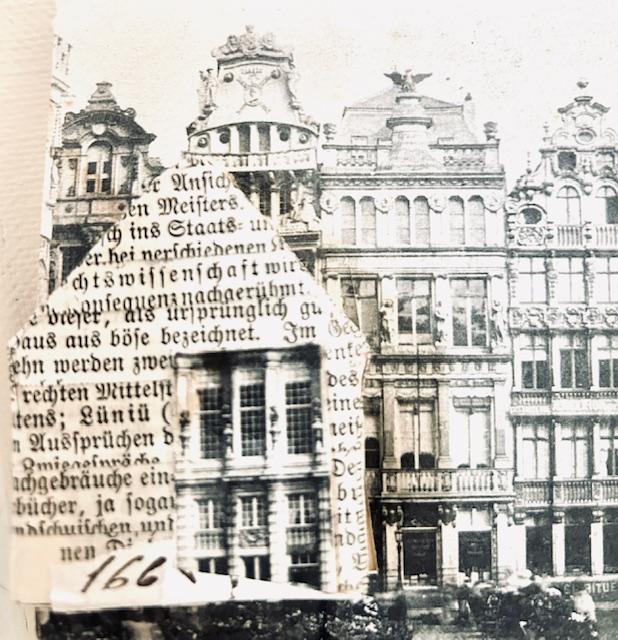 r Ansich
en Meisters.
ch ins Staats- u
er, bei verschiedenen
chtswissenschaft wir
onsequenz nachgerühmt
dieser, als ursprünglich gu
aus aus böse bezeichnet. Im
ehn werden zwe
rechten Mittelst
tens; Lüniü (
n Aussprüchen d
Zwiegespräche
chgebräuche ein-
bücher, ja sogar
ndschuischen, und
nen
Ge
ente
des
eine
nei
De
br
it
nd
che
166